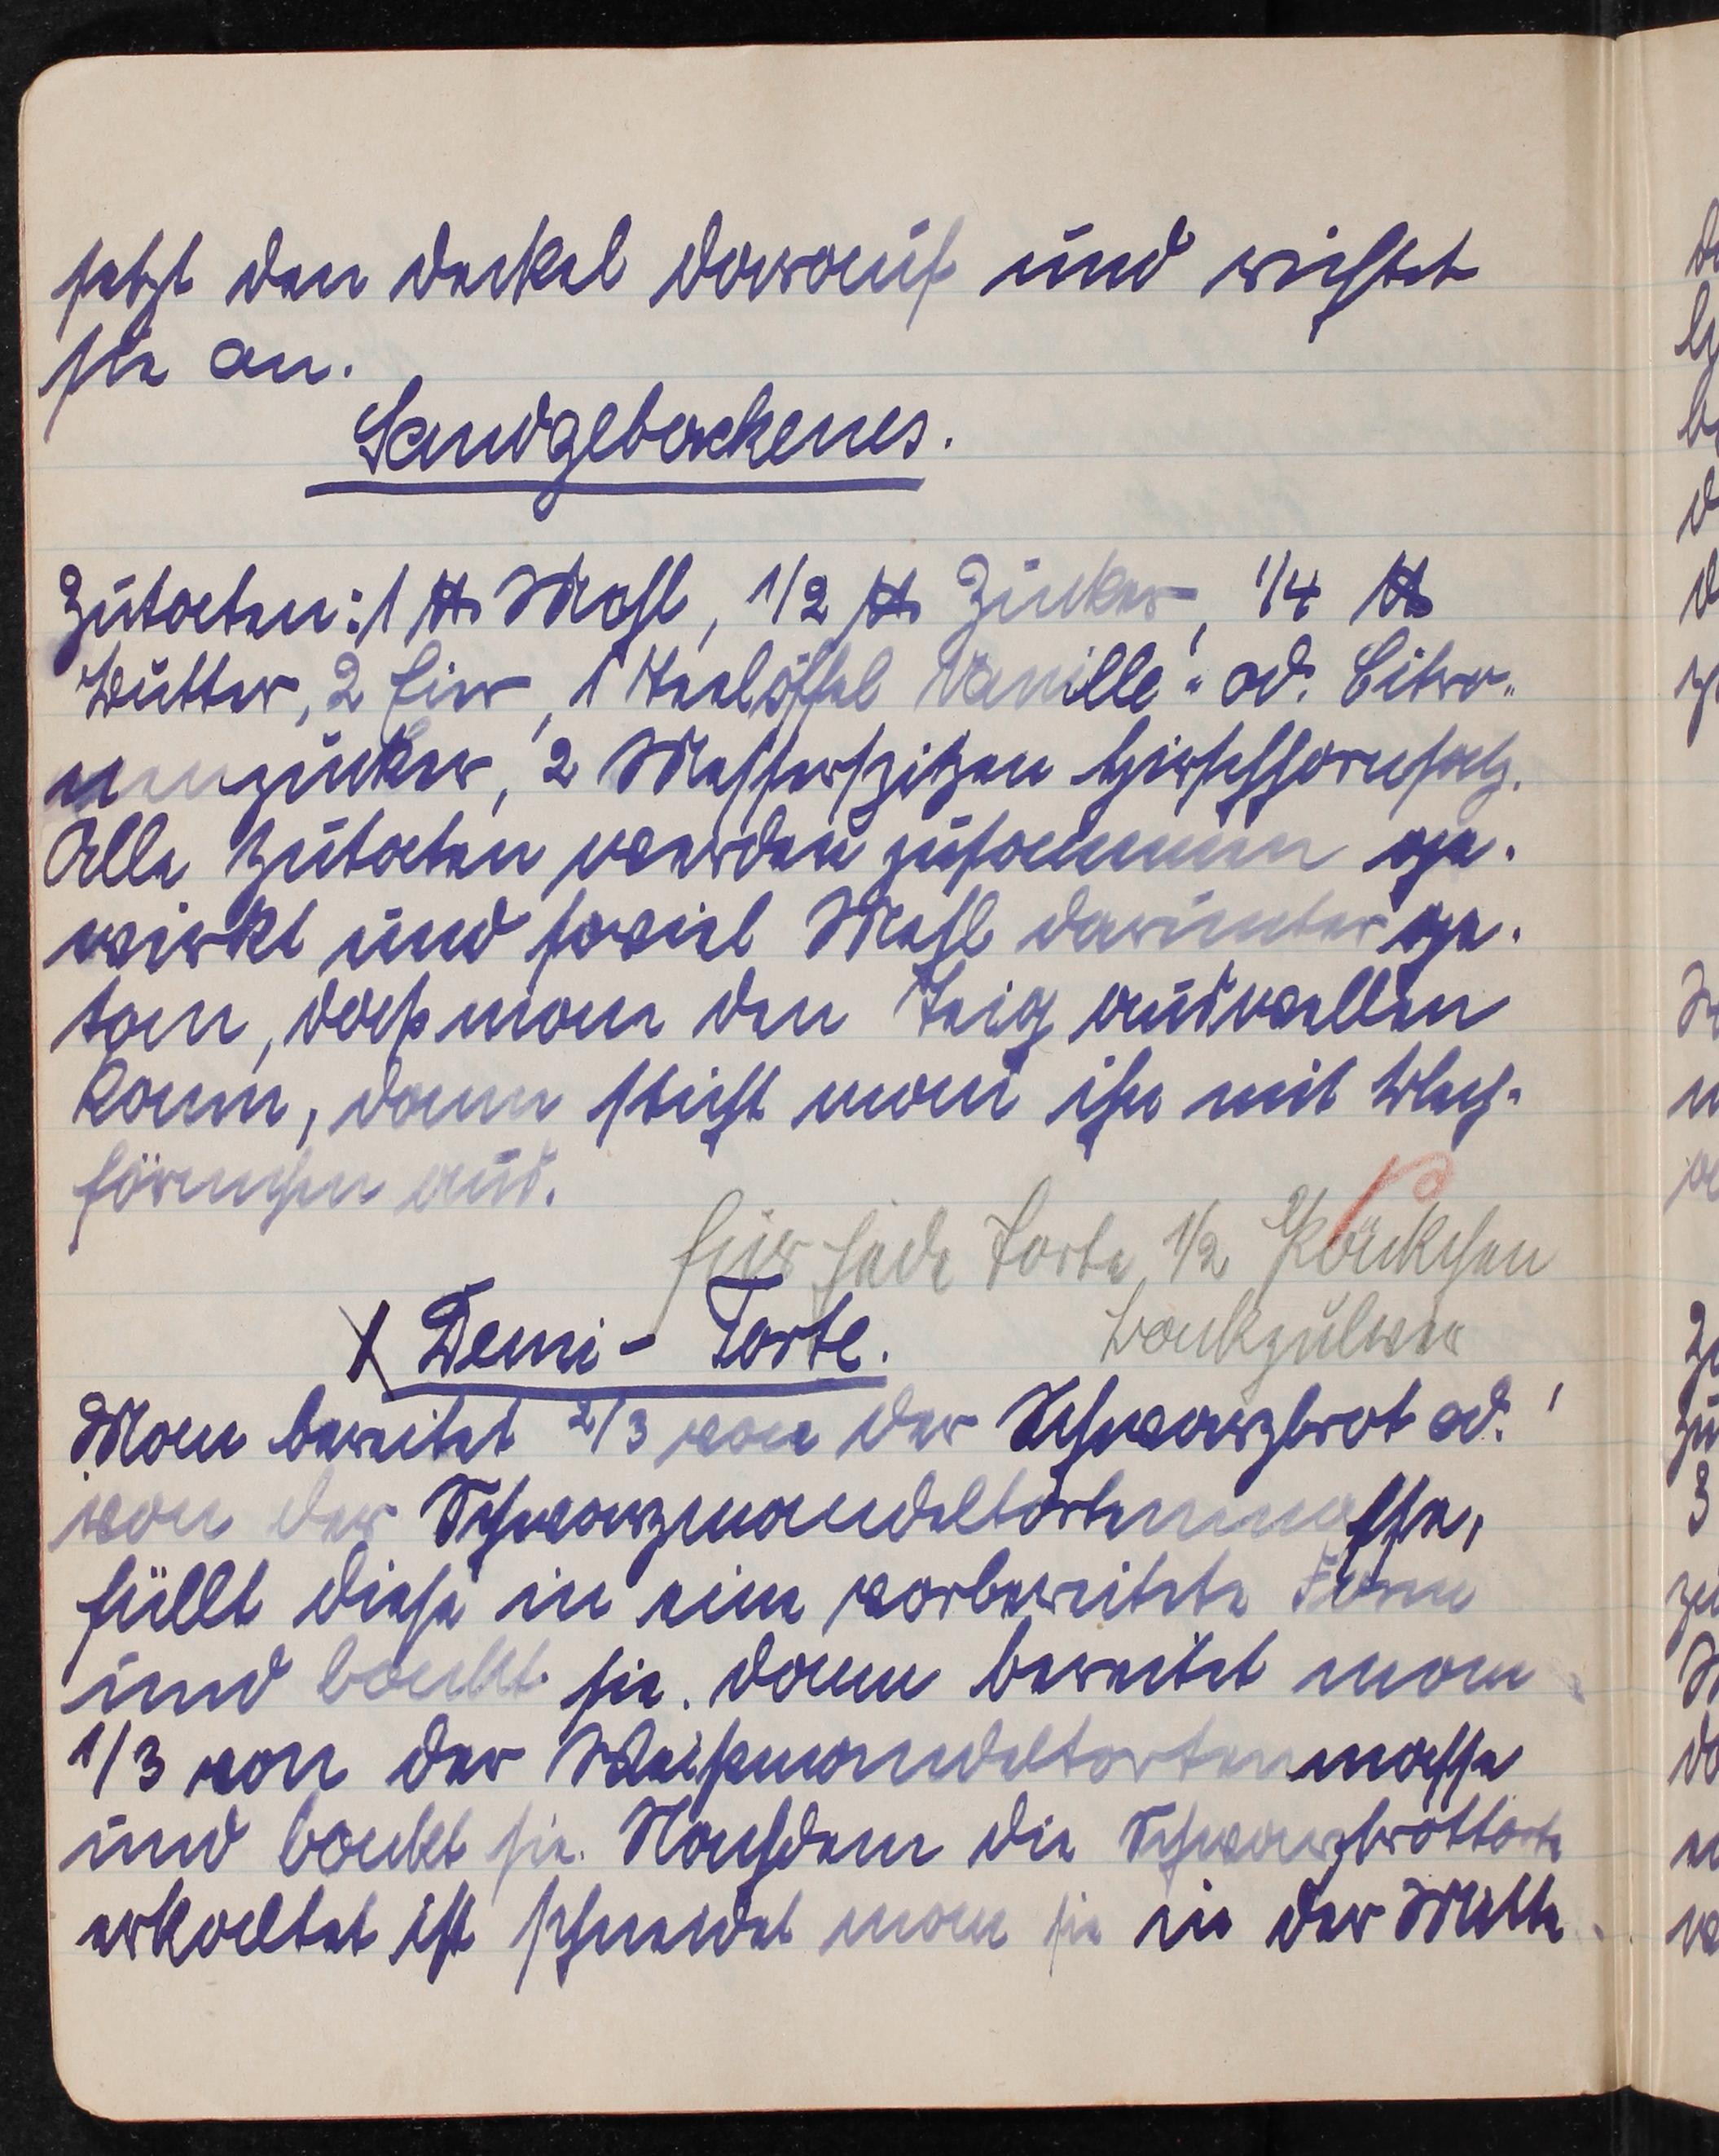 setzt den Deckel darauf und richtet
sie an.
Sandgebackenes.
Zutaten: 1 ℔ Mehl, 1/2 ℔ Zucker, 1/4 ℔
Butter, 2 Eier, 1 Teelöffel Vanille- od. Citro-
nenzucker, 2 Messerspitzen Hirschhornsalz.
Alle Zutaten werden zusammen ge-
wirkt und soviel Mehl darunter ge-
tan, daß man den Teig auswellen
kann, dann sticht man ihn mit Blech-
förmchen aus.
für jede Torte 1/2 Päckchen
Backpulver
X Demi-Torte.
Man bereitet 2/3 von der Schwarzbrot od.
von der Schwarzmandeltortenmasse,
füllt diese in eine vorbereitete Form
und backt sie. Dann bereitet man
1/3 von der Weißmandeltortenmasse
und backt sie. Nachdem die Schwarzbrottorte
erkaltet ist schneidet man sie in der Mitte